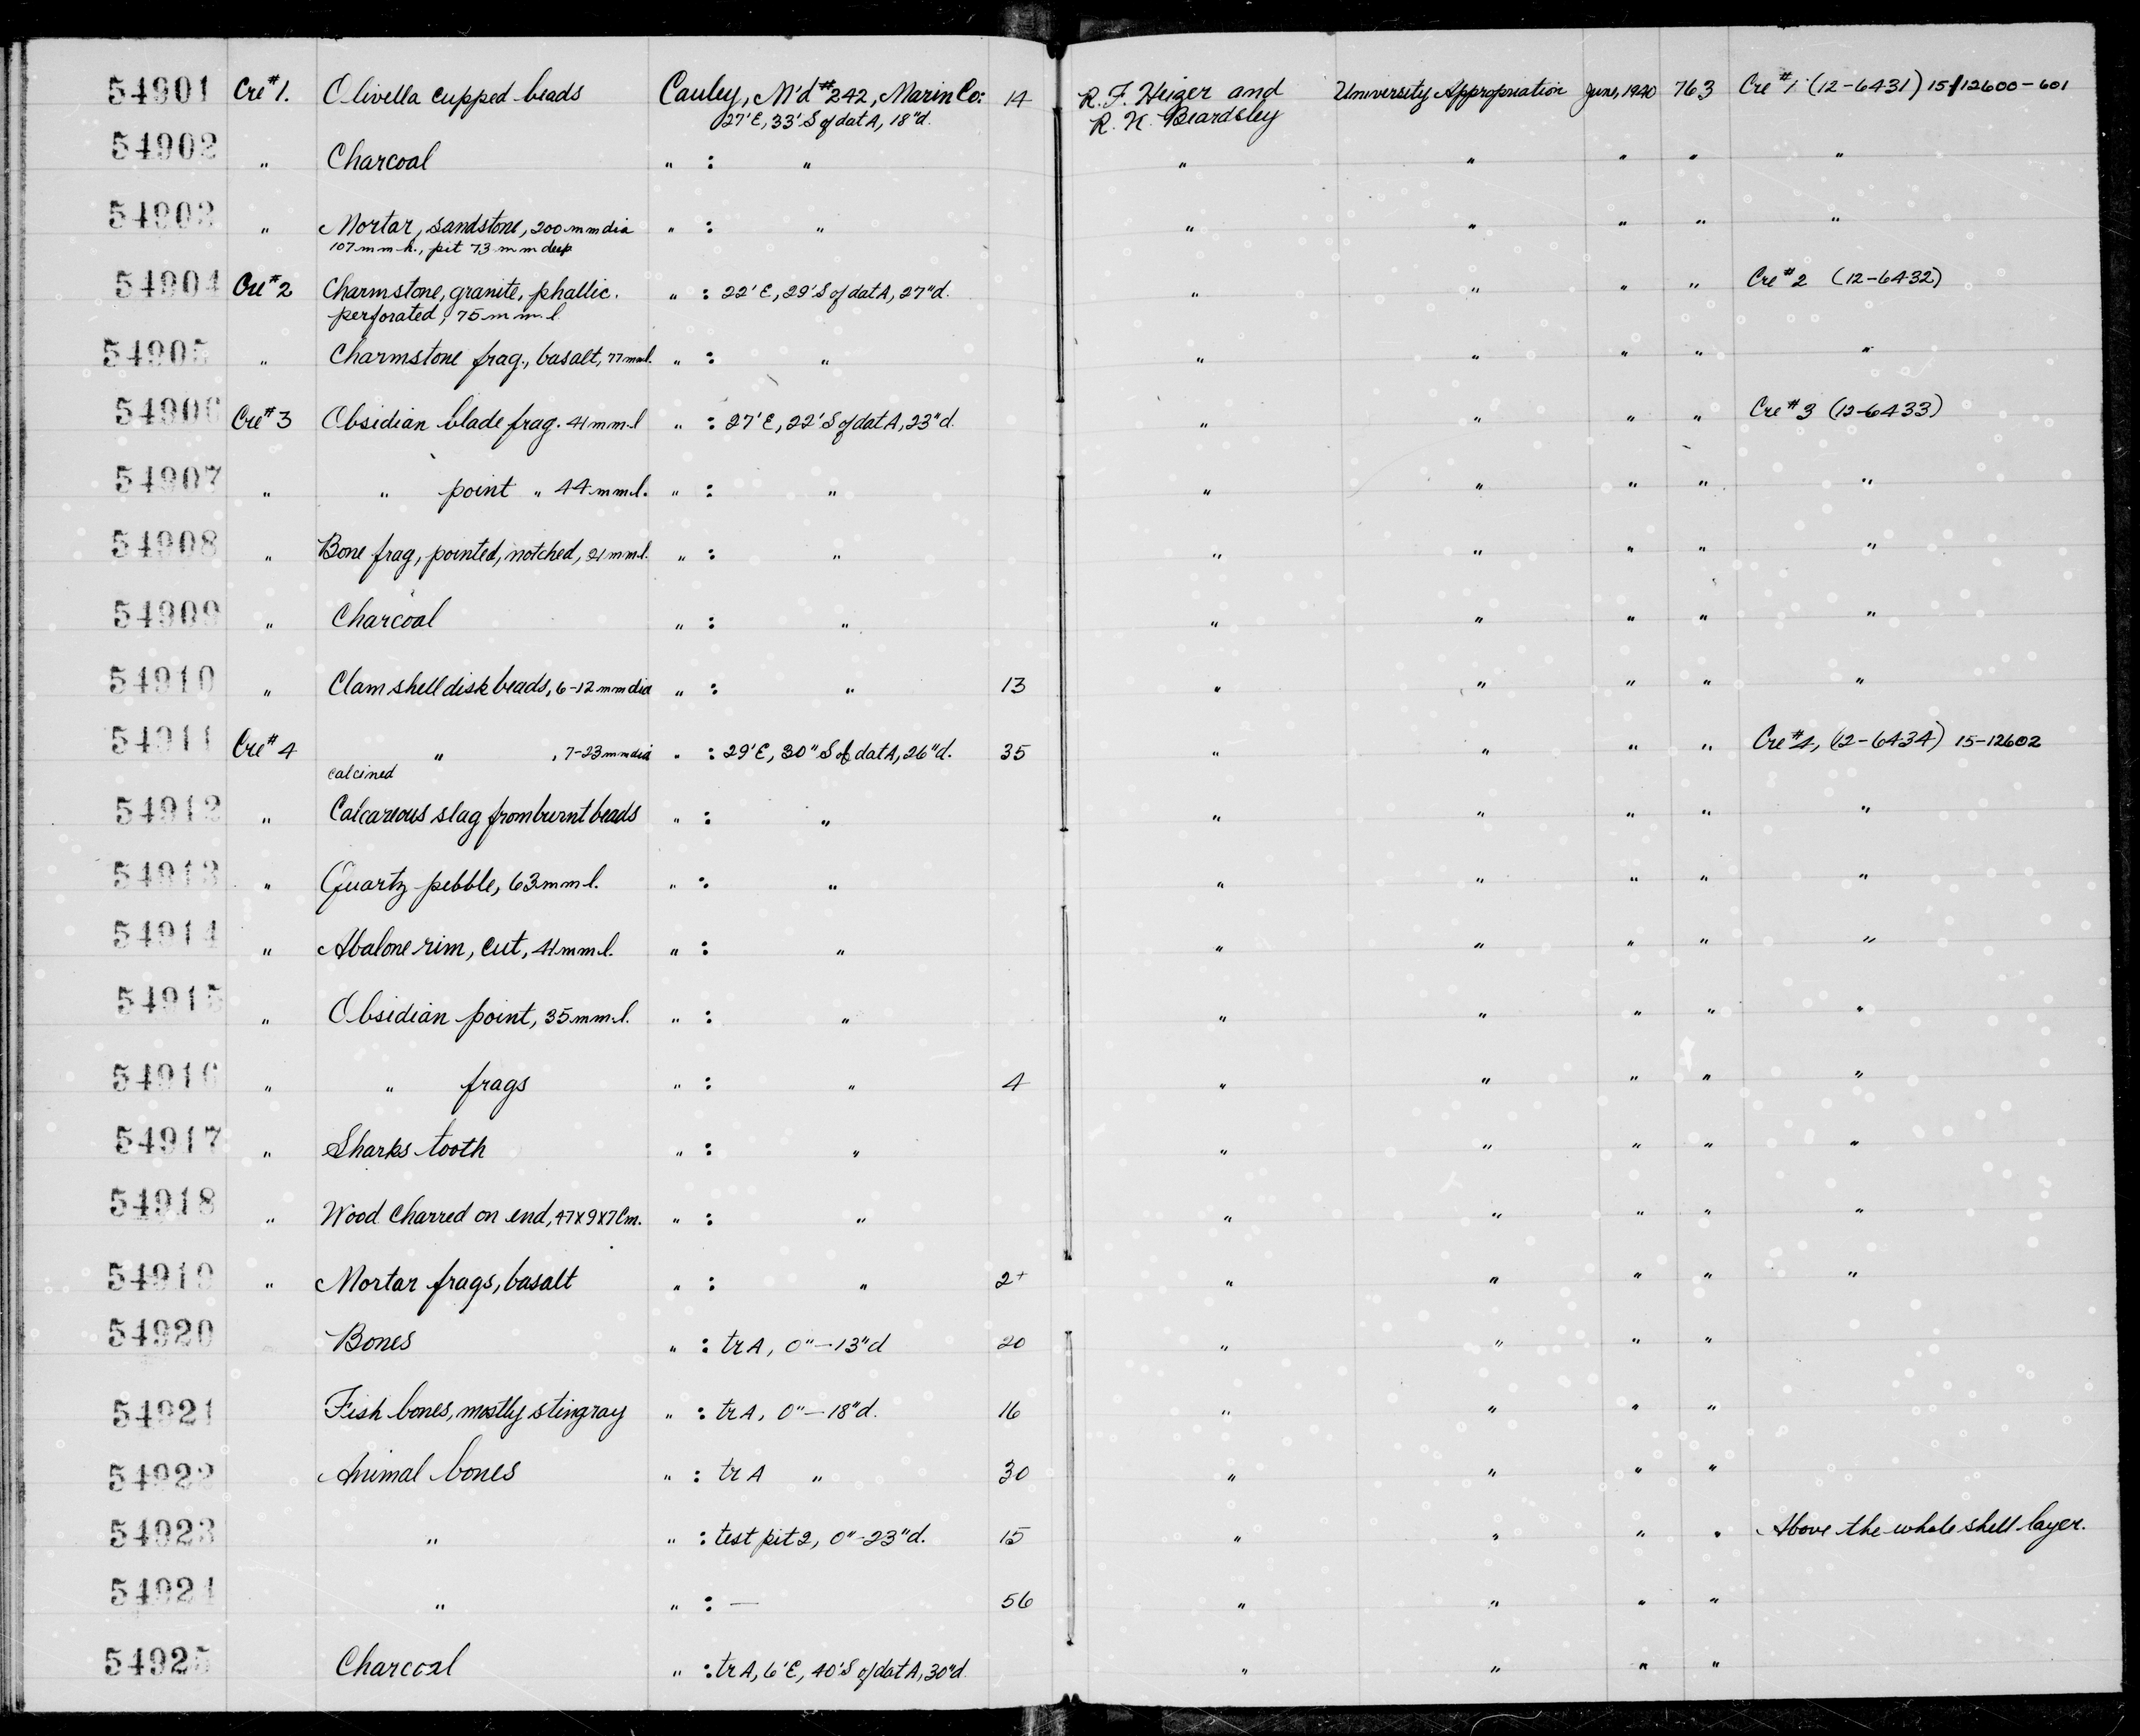 54901 Cre #1. Olivella cupped beads Cauley, M'd #242, Marin Co: 14 R. F. Heizer and University Appropriation June, 1940 763 Cre #1 (12-6431) 15/12600-601
27'E, 33'S of dat A, 18"d. R. K. Beardsley
54902 " Charcoal " : " " " " " "
54903 " Mortar, sandstone, 200 mm dia " : " " " " " "
107 mm h., pit 73 mm deep
54904 Cre #2 Charmstone, granite, phallic. " : 22'E, 29'S of dat A, 27"d. " " " " Cre #2 (12-6432)
perforated, 75 mm l
54905 " Charmstone frag., basalt, 77 mm l. " : " " " " " "
54906 Cre #3 Obsidian blade frag. 41 mm l " : 27'E, 22'S of dat A, 23"d. " " " " Cre #3 (12-6433)
54907 " " point " 44 mm l. " : " " " " " "
54908 " Bone frag, pointed, notched, 21 mm l. " : " " " " " "
54909 " Charcoal " : " " " " " "
54910 " Clam shell disk beads, 6-12 mm dia " : " 13 " " " " "
54911 Cre #4 " , 7-23 mm dia " : 29'E, 30"S of dat A, 26"d. 35 " " " " Cre #4, (12-6434) 15-12602
calcined
54912 " Calcareous slag from burnt beads " : " " " " " "
54913 " Quartz pebble, 63 mm l. " : " " " " " "
54914 " Abalone rim, cut, 41 mm l. " : " " " " " "
54915 " Obsidian point, 35 mm l. " : " " " " " "
54916 " " frags " : " 4 " " " " "
54917 " Sharks tooth " : " " " " " "
54918 " Wood charred on end, 47x9x7 cm. " : " " " " " "
54919 " Mortar frags, basalt " : " 2+ " " " " "
54920 Bones " : tr A, 0"-13"d 20 " " " "
54921 Fish bones, mostly stingray " : tr A, 0"-18"d. 16 " " " "
54922 Animal bones " : tr A " 30 " " " "
54923 " " : test pit 2, 0"-23"d. 15 " " " " Above the whole shell layer.
54924 " " : — 56 " " " "
54925 Charcoal " : tr A, 6'E, 40'S of dat A, 30"d. " " " "